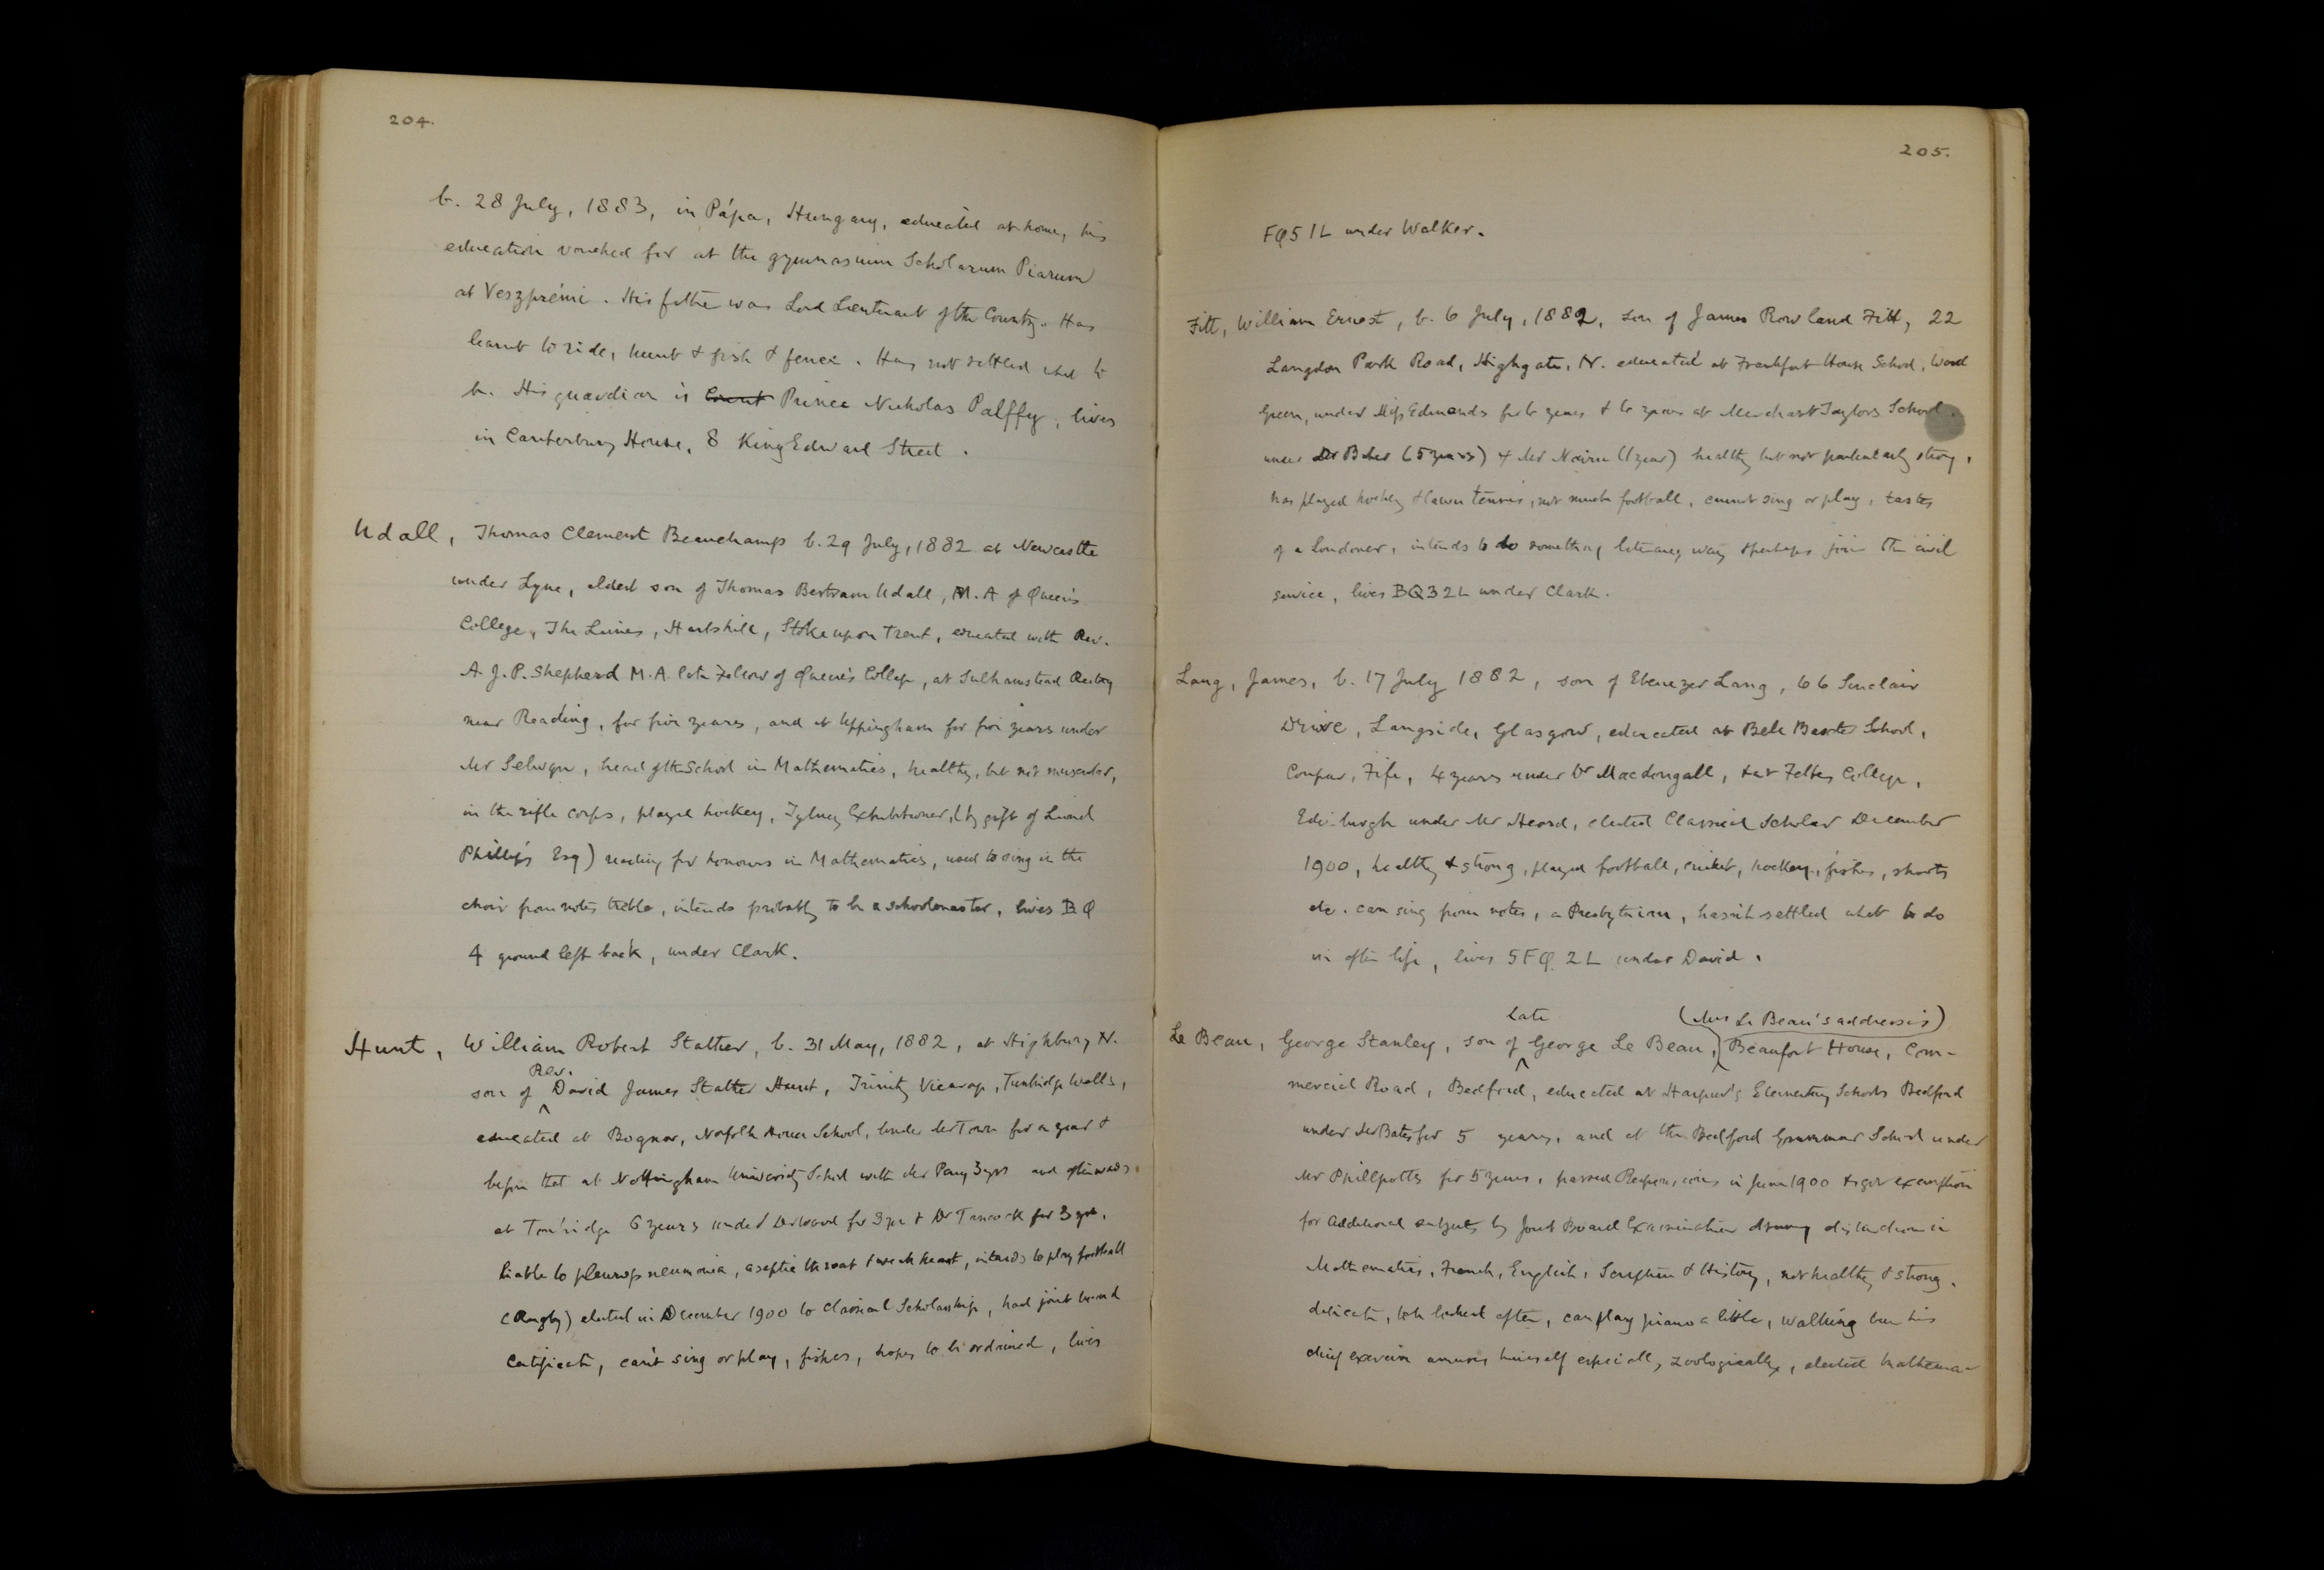 204.
b. 28 July, 1883, in Pápa, Hungary, educated at home, his
education vouched for at the gymnasium Scholarum Piarum
at Veszprémi. His father was Lord Lieutenant of the County. Has
learnt to ride, hunt & fish & fence. Has not settled what to
be. His guardian is Count Prince Nicholas Palffy, lives
in Canterbury House, 8 King Edward Street.
Udall, Thomas Clement Beauchamp b. 29 July, 1882 at Newcastle
under Lyne, eldest son of Thomas Bertram Udall, M.A of Queen's
College, The Limes, Hartshill, Stoke upon Trent, educated with Rev.
A. J. P. Shepherd M.A. late Fellow of Queen's College, at Sulhamstead Rectory
near Reading, for five years, and at Uppingham for five years under
Mr Selwyn, head of the School in Mathematics, healthy, but not muscular,
in the rifle corps, played hockey, Tylney Exhibitioner, (by gift of Lionel
Phillips Esq) reading for honours in Mathematics, used to sing in the
choir from notes treble, intends probably to be a schoolmaster, lives BQ
4 ground left back, under Clark.
Hunt, William Robert Stather, b. 31 May, 1882, at Highbury N.
son of Rev. David James Stather Hunt, Trinity Vicarage, Tunbridge Wells,
educated at Bognor, Norfolk House School, under Mr Town for a year &
before that at Nottingham University School with Mr Parry 3 yrs and afterwards
at Tonbridge 6 years under Dr Wood for 3 yrs & Dr Tancock for 3 yrs.
liable to pleuropneumonia, aseptic throat & weak heart, intends to play football
(Rugby) elected in December 1900 to Classical Scholarship, had joint board
Certificate, can't sing or play, fishes, hopes to be ordained, lives
205.
FQ5 1L under Walker.
Fitt, William Ernest, b. 6 July, 1882, son of James Rowland Fitt, 22
Langdon Park Road, Highgate, N. educated at Frankfort House School, Wood
Green, under Miss Edmonds for 6 years & 6 years at Merchant Taylors School.
under Dr Baker (5 years) & Mr Nairn (1 year) healthy but not particularly strong,
has played hockey & lawn tennis, not much football, cannot sing or play, tastes
of a Londoner, intends to do something literary way & perhaps join the civil
service, lives BQ3 2L under Clark.
Lang, James, b. 17 July 1882, son of Ebenezer Lang, 66 Sinclair
Drive, Langside, Glasgow, educated at Bell Baxter School,
Coupar, Fife, 4 years under Dr Macdongall, & at Fettes College,
Edinburgh under Mr Heard, elected Classical Scholar December
1900, healthy & strong, played football, cricket, hockey, fishes, shoots
etc. can sing from notes, a Presbyterian, hasn't settled what to do
in after life, lives 5FQ 2L under David.
Le Beau, George Stanley, son of late George Le Beau, (Mrs Le Beau's address is) Beaufort House, Com-
mercial Road, Bedford, educated at Harpur's Elementary Schools Bedford
under Mr Bates for 5 years, and at the Bedford Grammar School under
Mr Phillpotts for 5 years, passed Responsions in June 1900 & got exemption
for additional subjects by Joint Board Examination & many distinction in
Mathematics, French, English, Scripture & History, not healthy & strong,
delicate, to be looked after, can play piano a little, walking been his
chief exercise amuses himself especially zoologically, elected Mathema-